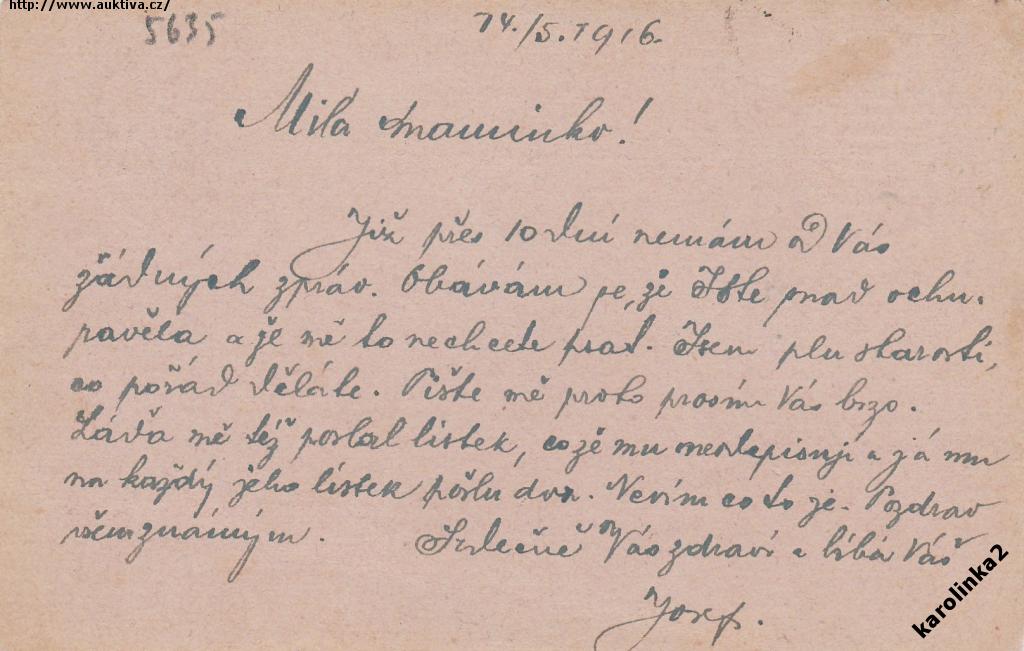 http://www.auktiva.cz/
5635
14./5. 1916.
Milá maminko!
Již přes 10 dní nemám od Vás
žádných zpráv. Obávám se, že Jste snad ochu-
ravěla a že mě to nechcete psat. Jsem pln starosti,
co pořád děláte. Pište mě proto prosím Vás brzo.
Láďa mě též poslal listek, co že mu neodepisuji a já mu
na každý jeho lístek pošlu dva. Nevím co to je. Pozdrav
všem známým. Srdečně Vás zdraví a líbá Váš
Josef.
karolinka2